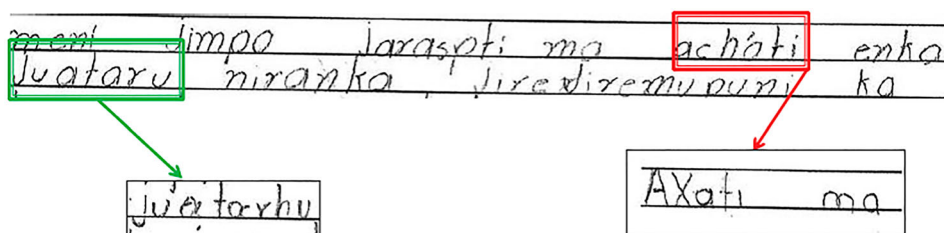 meni jimpo jaraspti ma achati enka
Juataru niranka, jirejiremupuni ka
ju'atarhu
AXati ma